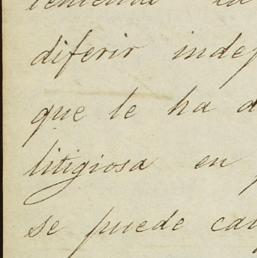 diferir indep
que le ha a
litigiosa en
se puede cau